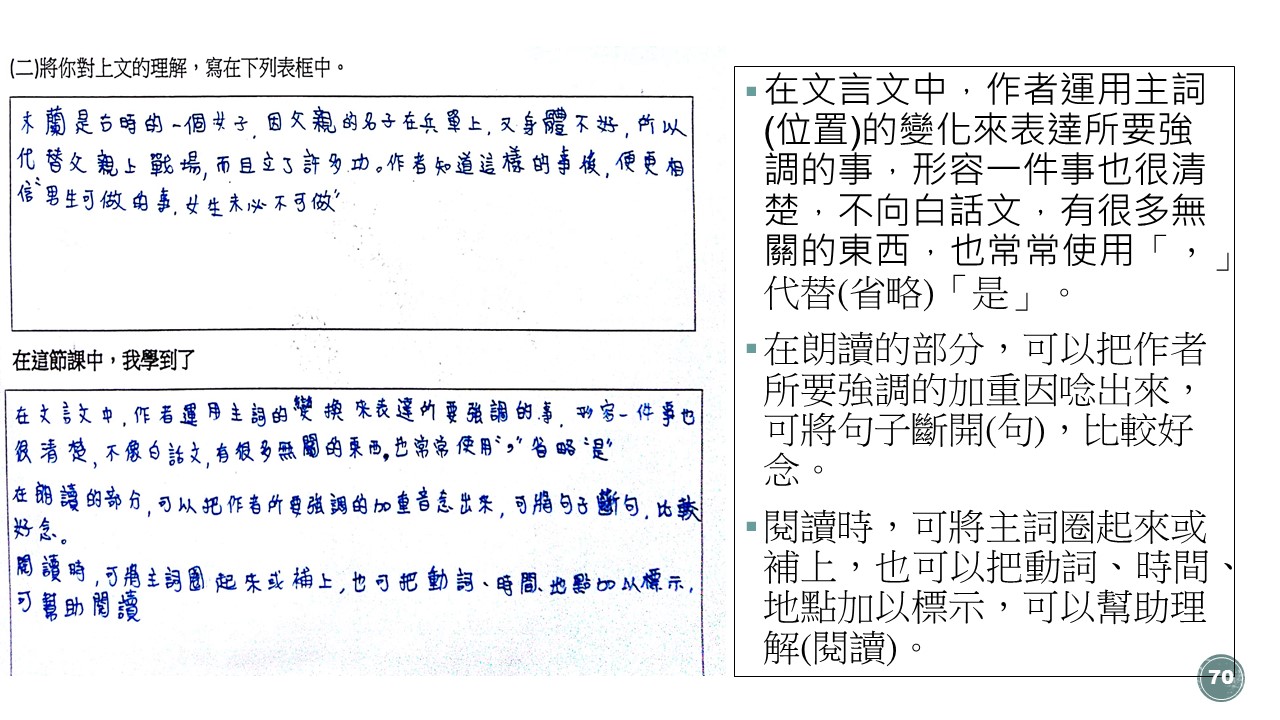 (二)將你對上文的理解，寫在下列表框中。
木蘭是古時的一個女子，因父親的名子在兵單上，又身體不好，所以
代替父親上戰場，而且立了許多功。作者知道這樣的事後，便更相
信"男生可做的事，女生未必不可做"
在這節課中，我學到了
在文言文中，作者運用主詞的變換來表達所要強調的事，形容一件事也
很清楚，不像白話文，有很多無關的東西。也常常使用"，"省略"是"
在朗讀的部分，可以把作者所要強調的加重音念出來，可將句子斷句，比較
好念。
閱讀時，可將主詞圈起來或補上，也可把動詞、時間、地點加以標示，
可幫助閱讀
在文言文中，作者運用主詞
(位置)的變化來表達所要強
調的事，形容一件事也很清
楚，不向白話文，有很多無
關的東西，也常常使用「，」
代替(省略)「是」。
在朗讀的部分，可以把作者
所要強調的加重因唸出來，
可將句子斷開(句)，比較好
念。
閱讀時，可將主詞圈起來或
補上，也可以把動詞、時間、
地點加以標示，可以幫助理
解(閱讀)。
70